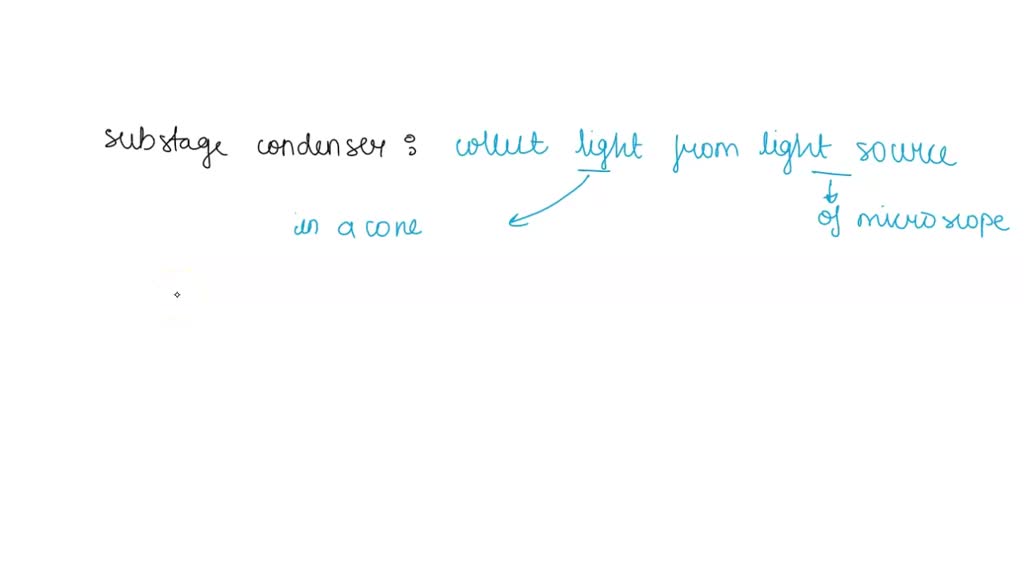 substage condenser : collect light from light source
in a cone of microscope